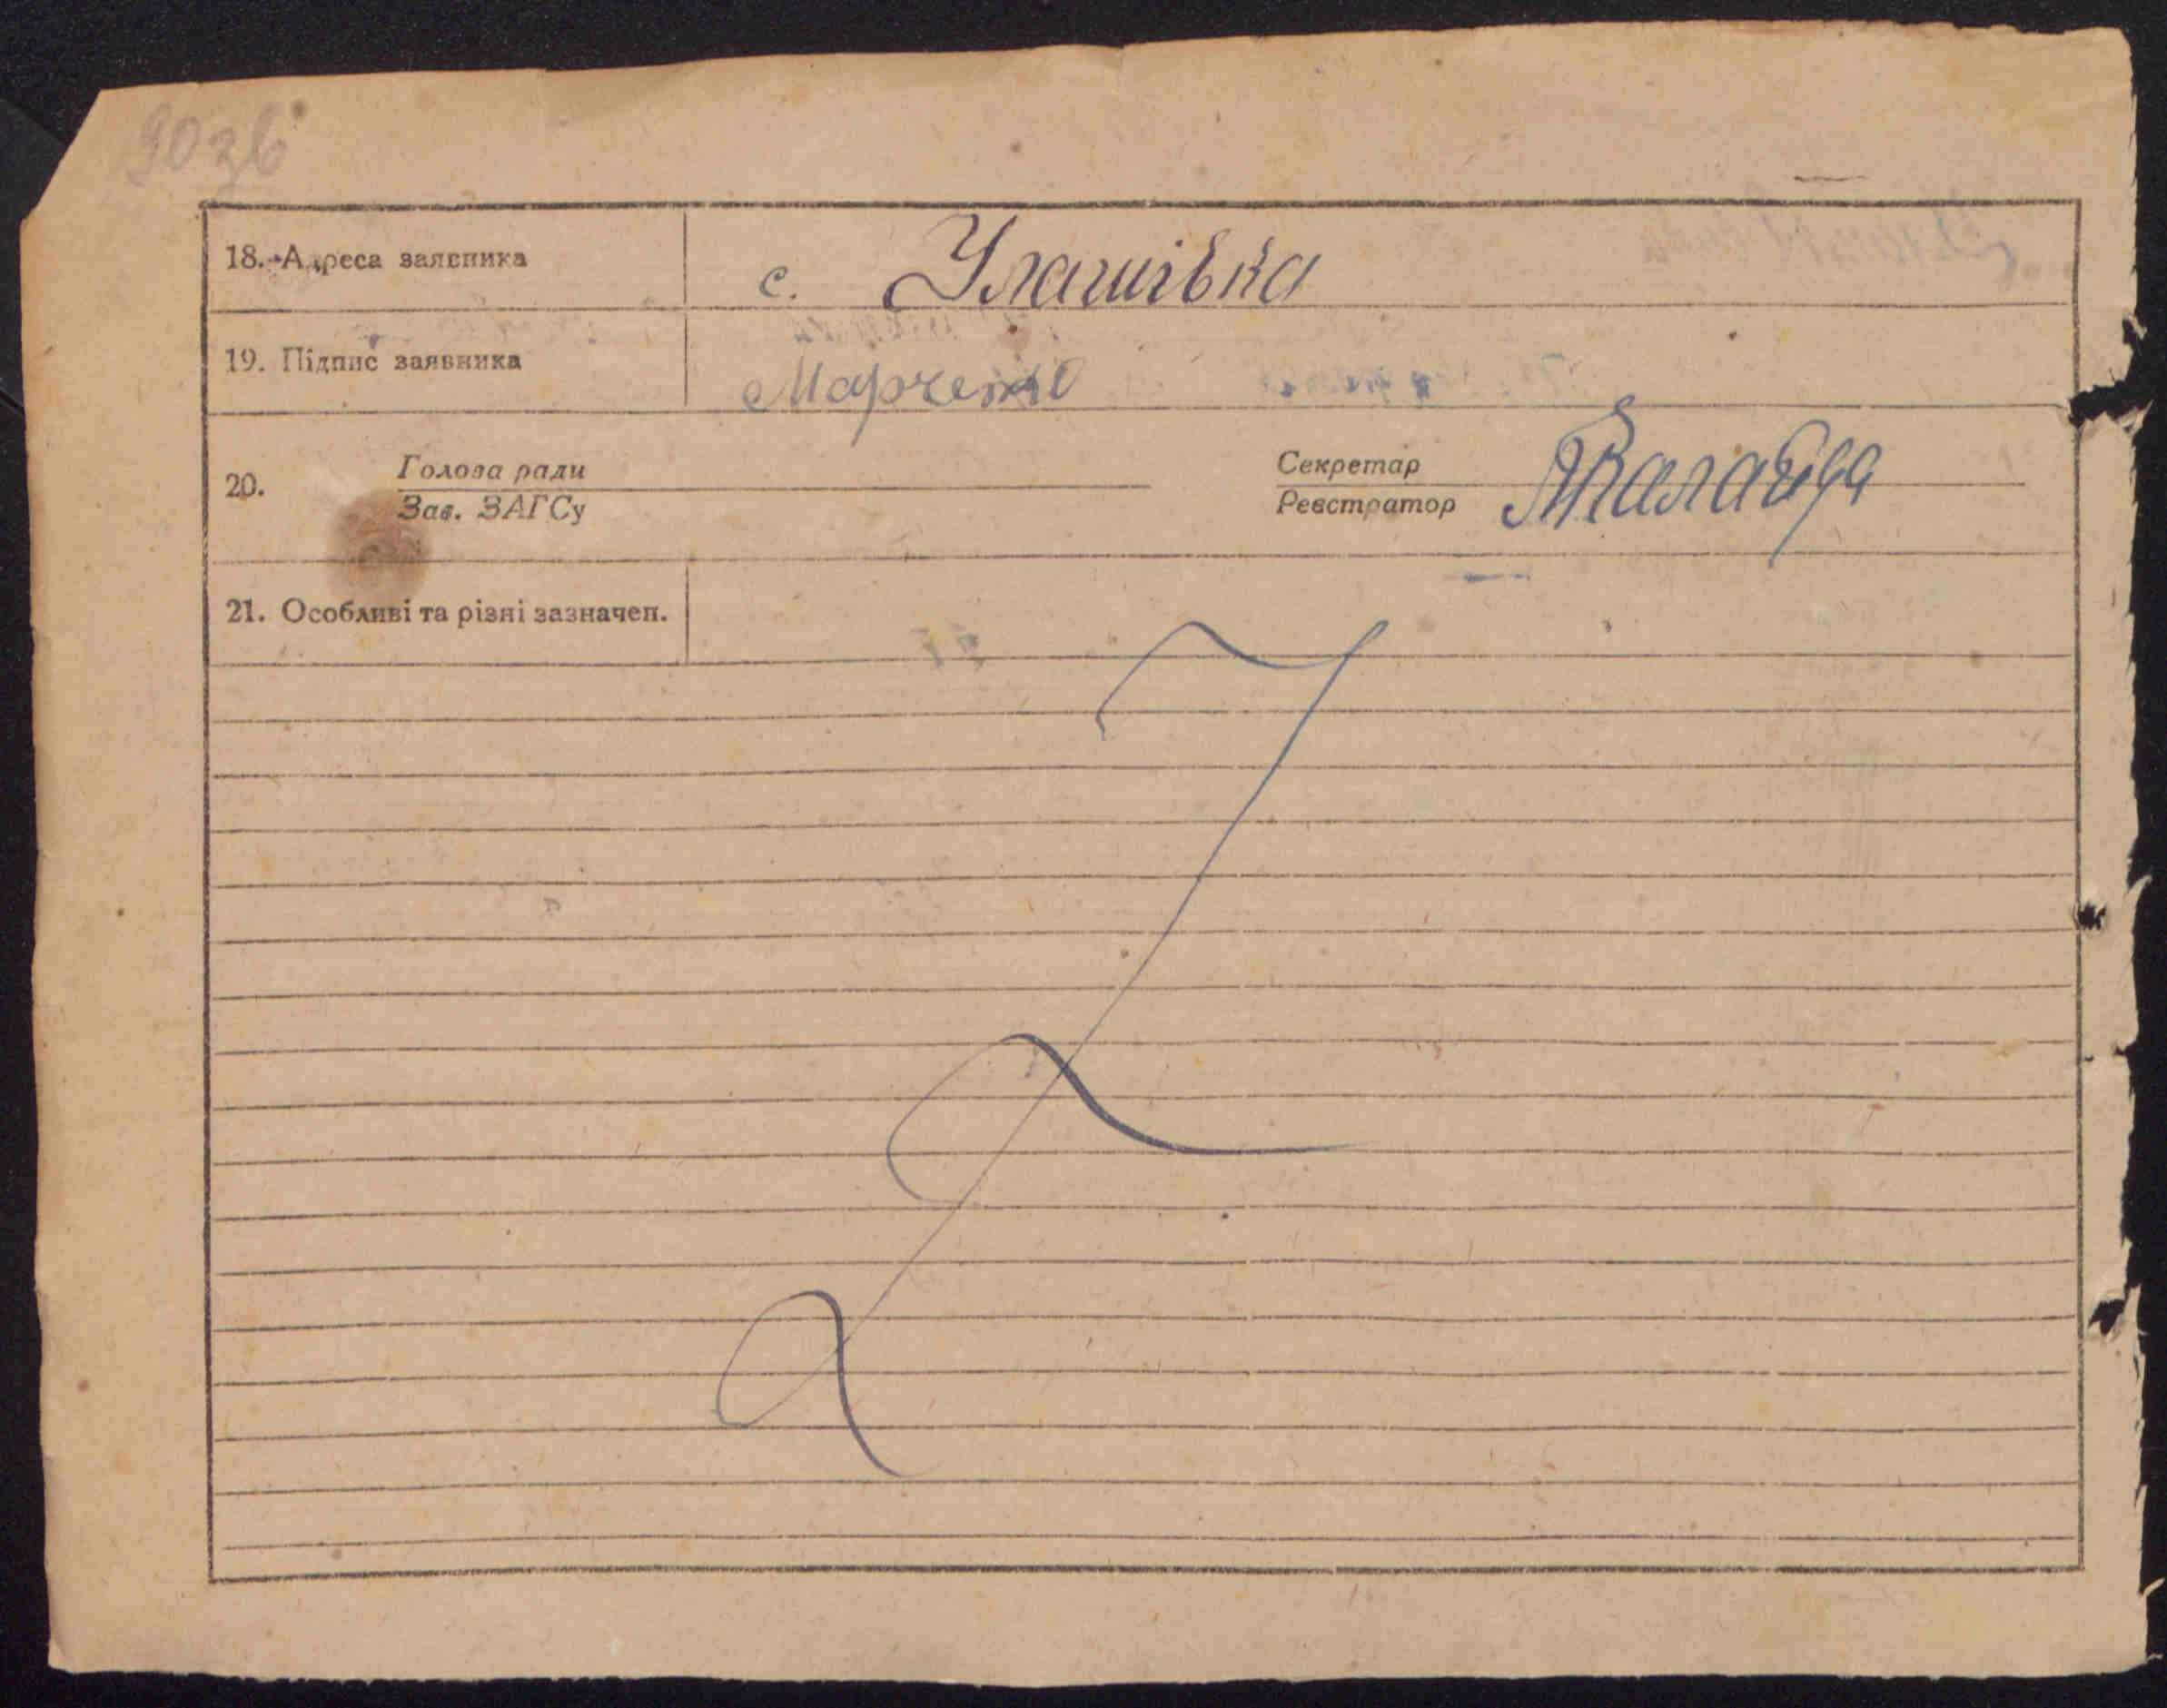 90 зв
18. Адреса заявника с. Улашівка
19. Підпис заявника Марченко
20. Голова ради Секретар
Зав. ЗАГСу Реєстратор Калайда
21. Особливі та різні зазначен.